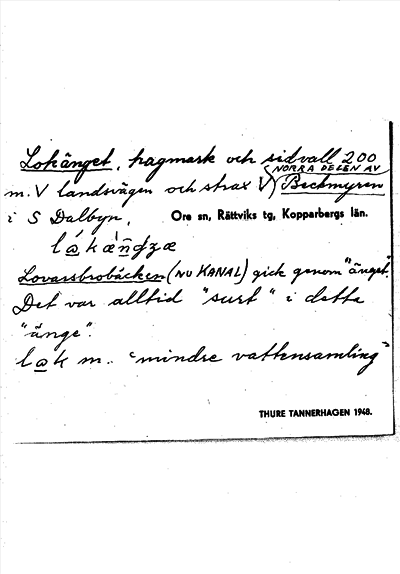 Lokänget, hagmark och sidvall 200
NORRA DELEN AV
m. V landsvägen och strax V Beckmyren
i S Dalbyn. Ore sn, Rättviks tg, Kopparbergs län.
Lovarsbrobäcken (NU KANAL) gick genom "änget".
Det var alltid "surt" i detta
"änge".
l a k m. "mindre vattensamling"
THURE TANNERHAGEN 1948.